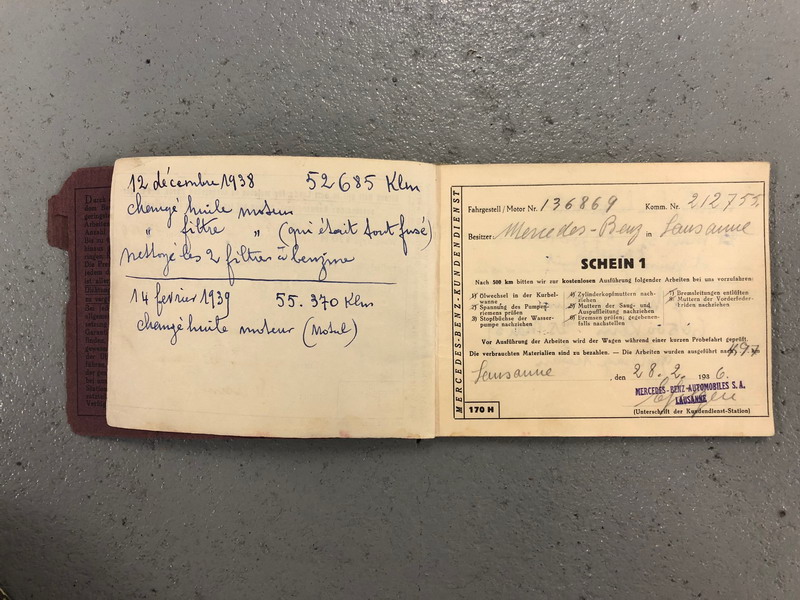 12 décembre 1938 52685 Klm
changé huile moteur
" filtre " (qui était tout fusé)
Nettoyé les 2 filtres à benzine
14 février 1939 55.370 Klm
changé huile moteur (Motul)
MERCEDES-BENZ-KUNDENDIENST
Fahrgestell / Motor Nr. 136869 Komm. Nr. 212755
Besitzer Mercedes-Benz in Lausanne
SCHEIN 1
Nach 500 km bitten wir zur kostenlosen Ausführung folgender Arbeiten bei uns vorzufahren:
1) Ölwechsel in der Kurbel-
wanne
2) Spannung des Pumpen-
riemens prüfen
3) Stopfbüchse der Wasser-
pumpe nachziehen
4) Zylinderkopfmuttern nach-
ziehen
5) Muttern der Saug- und
Auspuffleitung nachziehen
6) Bremsen prüfen; gegebenen-
falls nachstellen
7) Bremsleitungen entlüften
8) Muttern der Vorderfeder-
briden nachziehen
Vor Ausführung der Arbeiten wird der Wagen während einer kurzen Probefahrt geprüft.
Die verbrauchten Materialien sind zu bezahlen. — Die Arbeiten wurden ausgeführt nach 497
Lausanne , den 28. 2. 1936.
MERCEDES-BENZ-AUTOMOBILES S. A.
LAUSANNE
(Unterschrift der Kundendienst-Station)
170 H